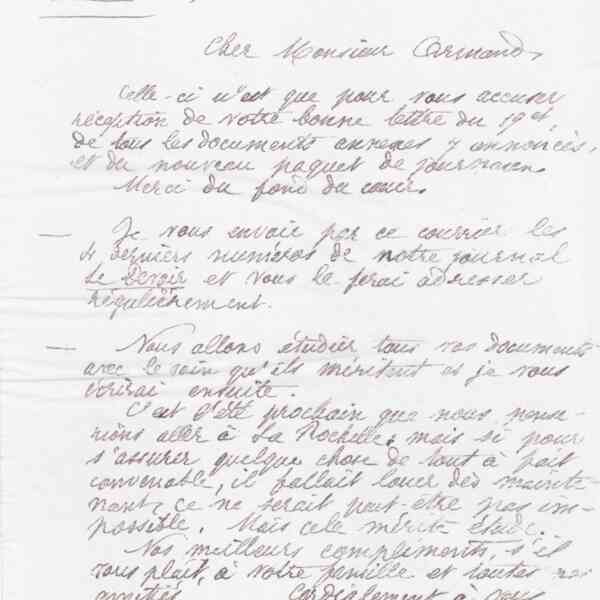 Cher Monsieur Armand,
Celle-ci n'est que pour vous accuser
réception de votre bonne lettre du 19 ct,
de tous les documents annexes y annoncés,
et du nouveau paquet de journaux.
Merci du fond du cœur.
— Je vous envoie par ce courrier les
4 derniers numéros de notre journal
Le Devoir et vous le ferai adresser
régulièrement.
— Nous allons étudier tous vos documents
avec le soin qu'ils méritent et je vous
écrirai ensuite.
C'est l'été prochain que nous pense-
rions aller à La Rochelle, mais si pour
s'assurer quelque chose de tout à fait
convenable, il fallait louer dès mainte-
nant, ce ne serait peut-être pas im-
possible. Mais cela mérite étude.
Nos meilleurs compliments, s'il
vous plaît, à votre famille et toutes nos
amitiés Cordialement à vous